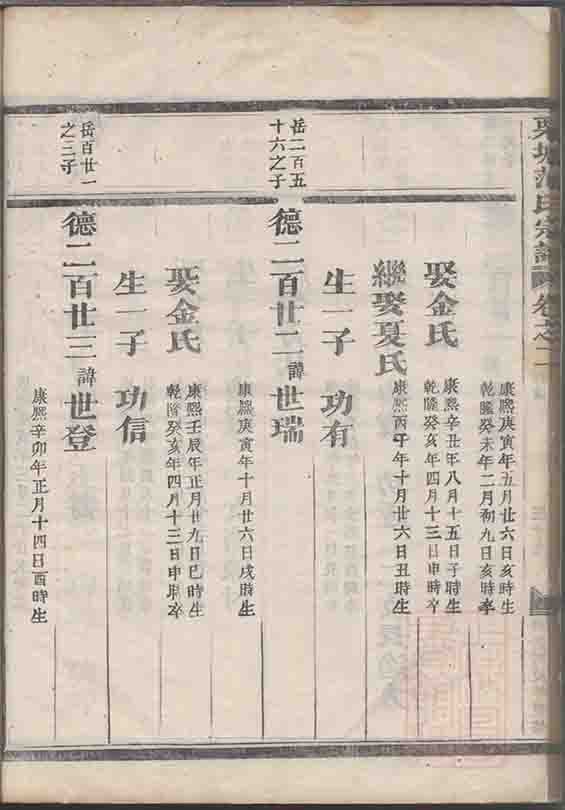 范氏宗譜 卷之二
康熙庚寅年五月廿六日亥時生
乾隆癸未年二月初九日亥時卒
娶金氏
康熙辛丑年八月十五日子時生
乾隆癸亥年四月十三日申時卒
繼娶夏氏
康熙丙子年十月廿六日丑時生
生一子 功有
岳二百五
十六之子
德二百廿二諱世瑞
康熙庚寅年十月廿六日戌時生
娶金氏
康熙壬辰年正月廿九日巳時生
乾隆癸亥年四月十三日申時卒
生一子 功信
岳百廿一
之三子
德二百廿三諱世登
康熙辛卯年正月十四日酉時生